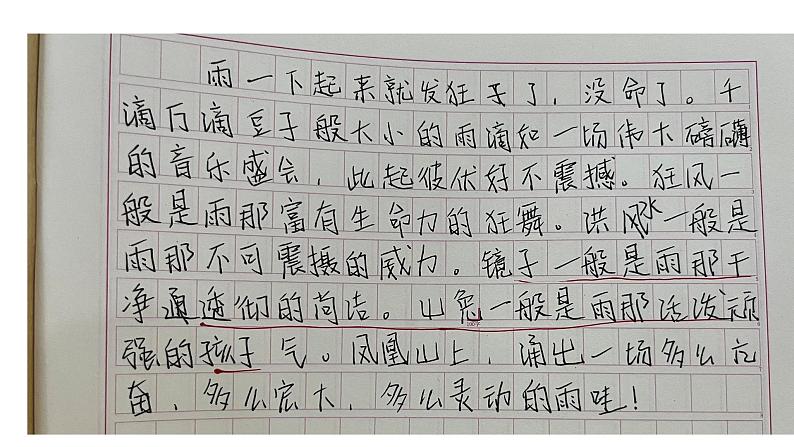 雨一下起来就发狂了了，没命了。千
滴万滴豆子般大小的雨滴如一场伟大磅礴
的音乐盛会，此起彼伏好不震撼。狂风一
般是雨那富有生命力的狂舞。洪水一般是
雨那不可震摄的威力。镜子一般是雨那干
净通透彻的简洁。山兔一般是雨那活泼顽
强的孩子气。凤凰山上，涌出一场多么亢
奋、多么宏大、多么灵动的雨哇！